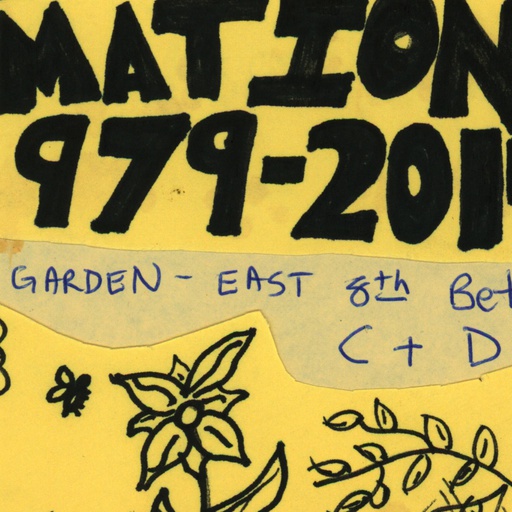 MATION
979-201
GARDEN - EAST 8th Bet
C + D